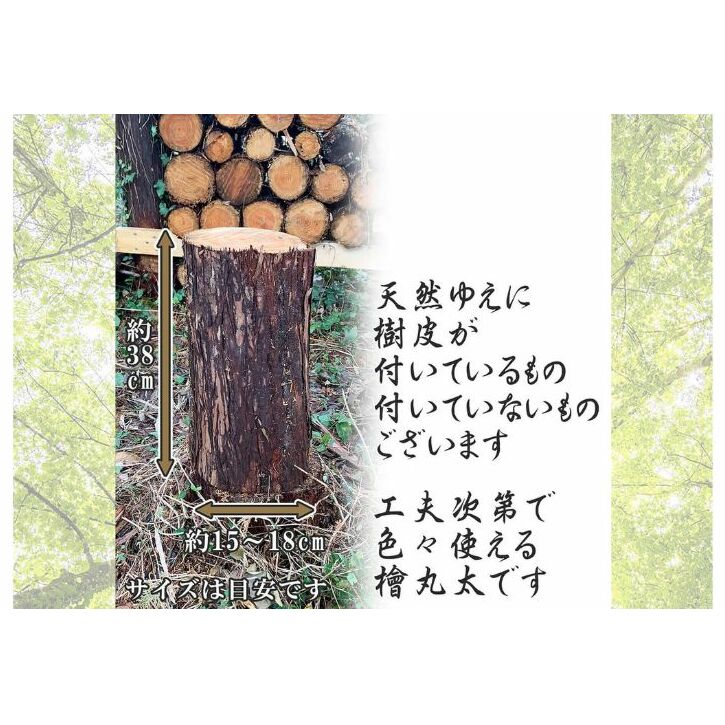 約38cm
約15～18cm
サイズは目安です
天然ゆえに
樹皮が
付いているもの
付いていないもの
ございます
工夫次第で
色々使える
檜丸太です